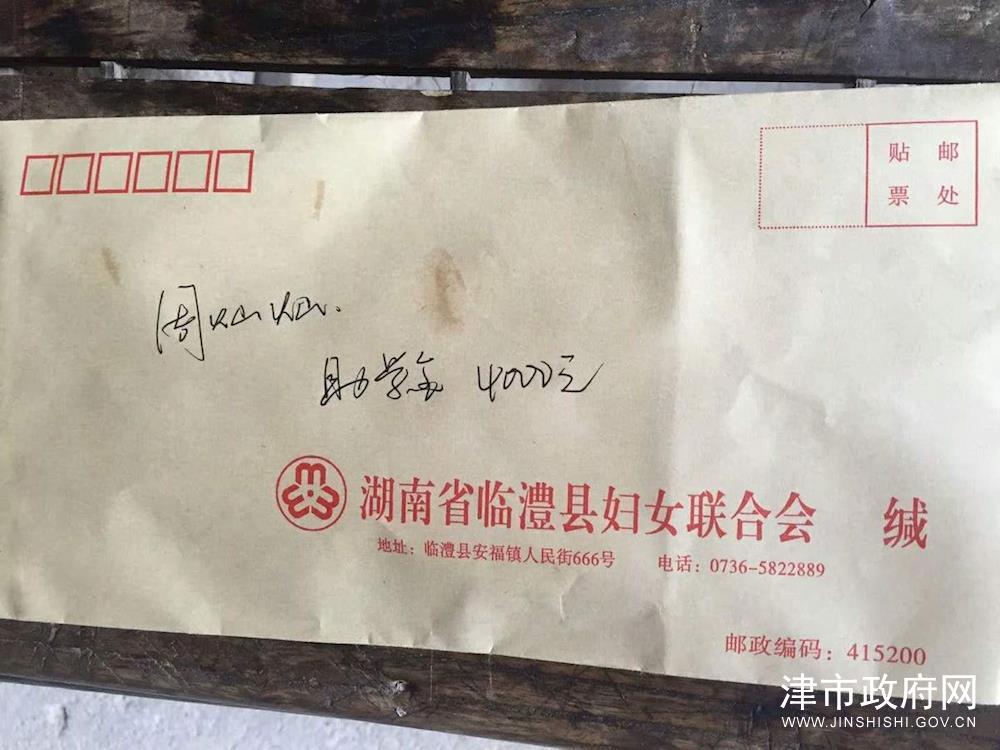 贴 邮
票 处
周灿灿.
助学金 4000元
湖南省临澧县妇女联合会 缄
地址：临澧县安福镇人民街666号 电话：0736-5822889
邮政编码：415200
津市政府网
WWW.JINSHISHI.GOV.CN